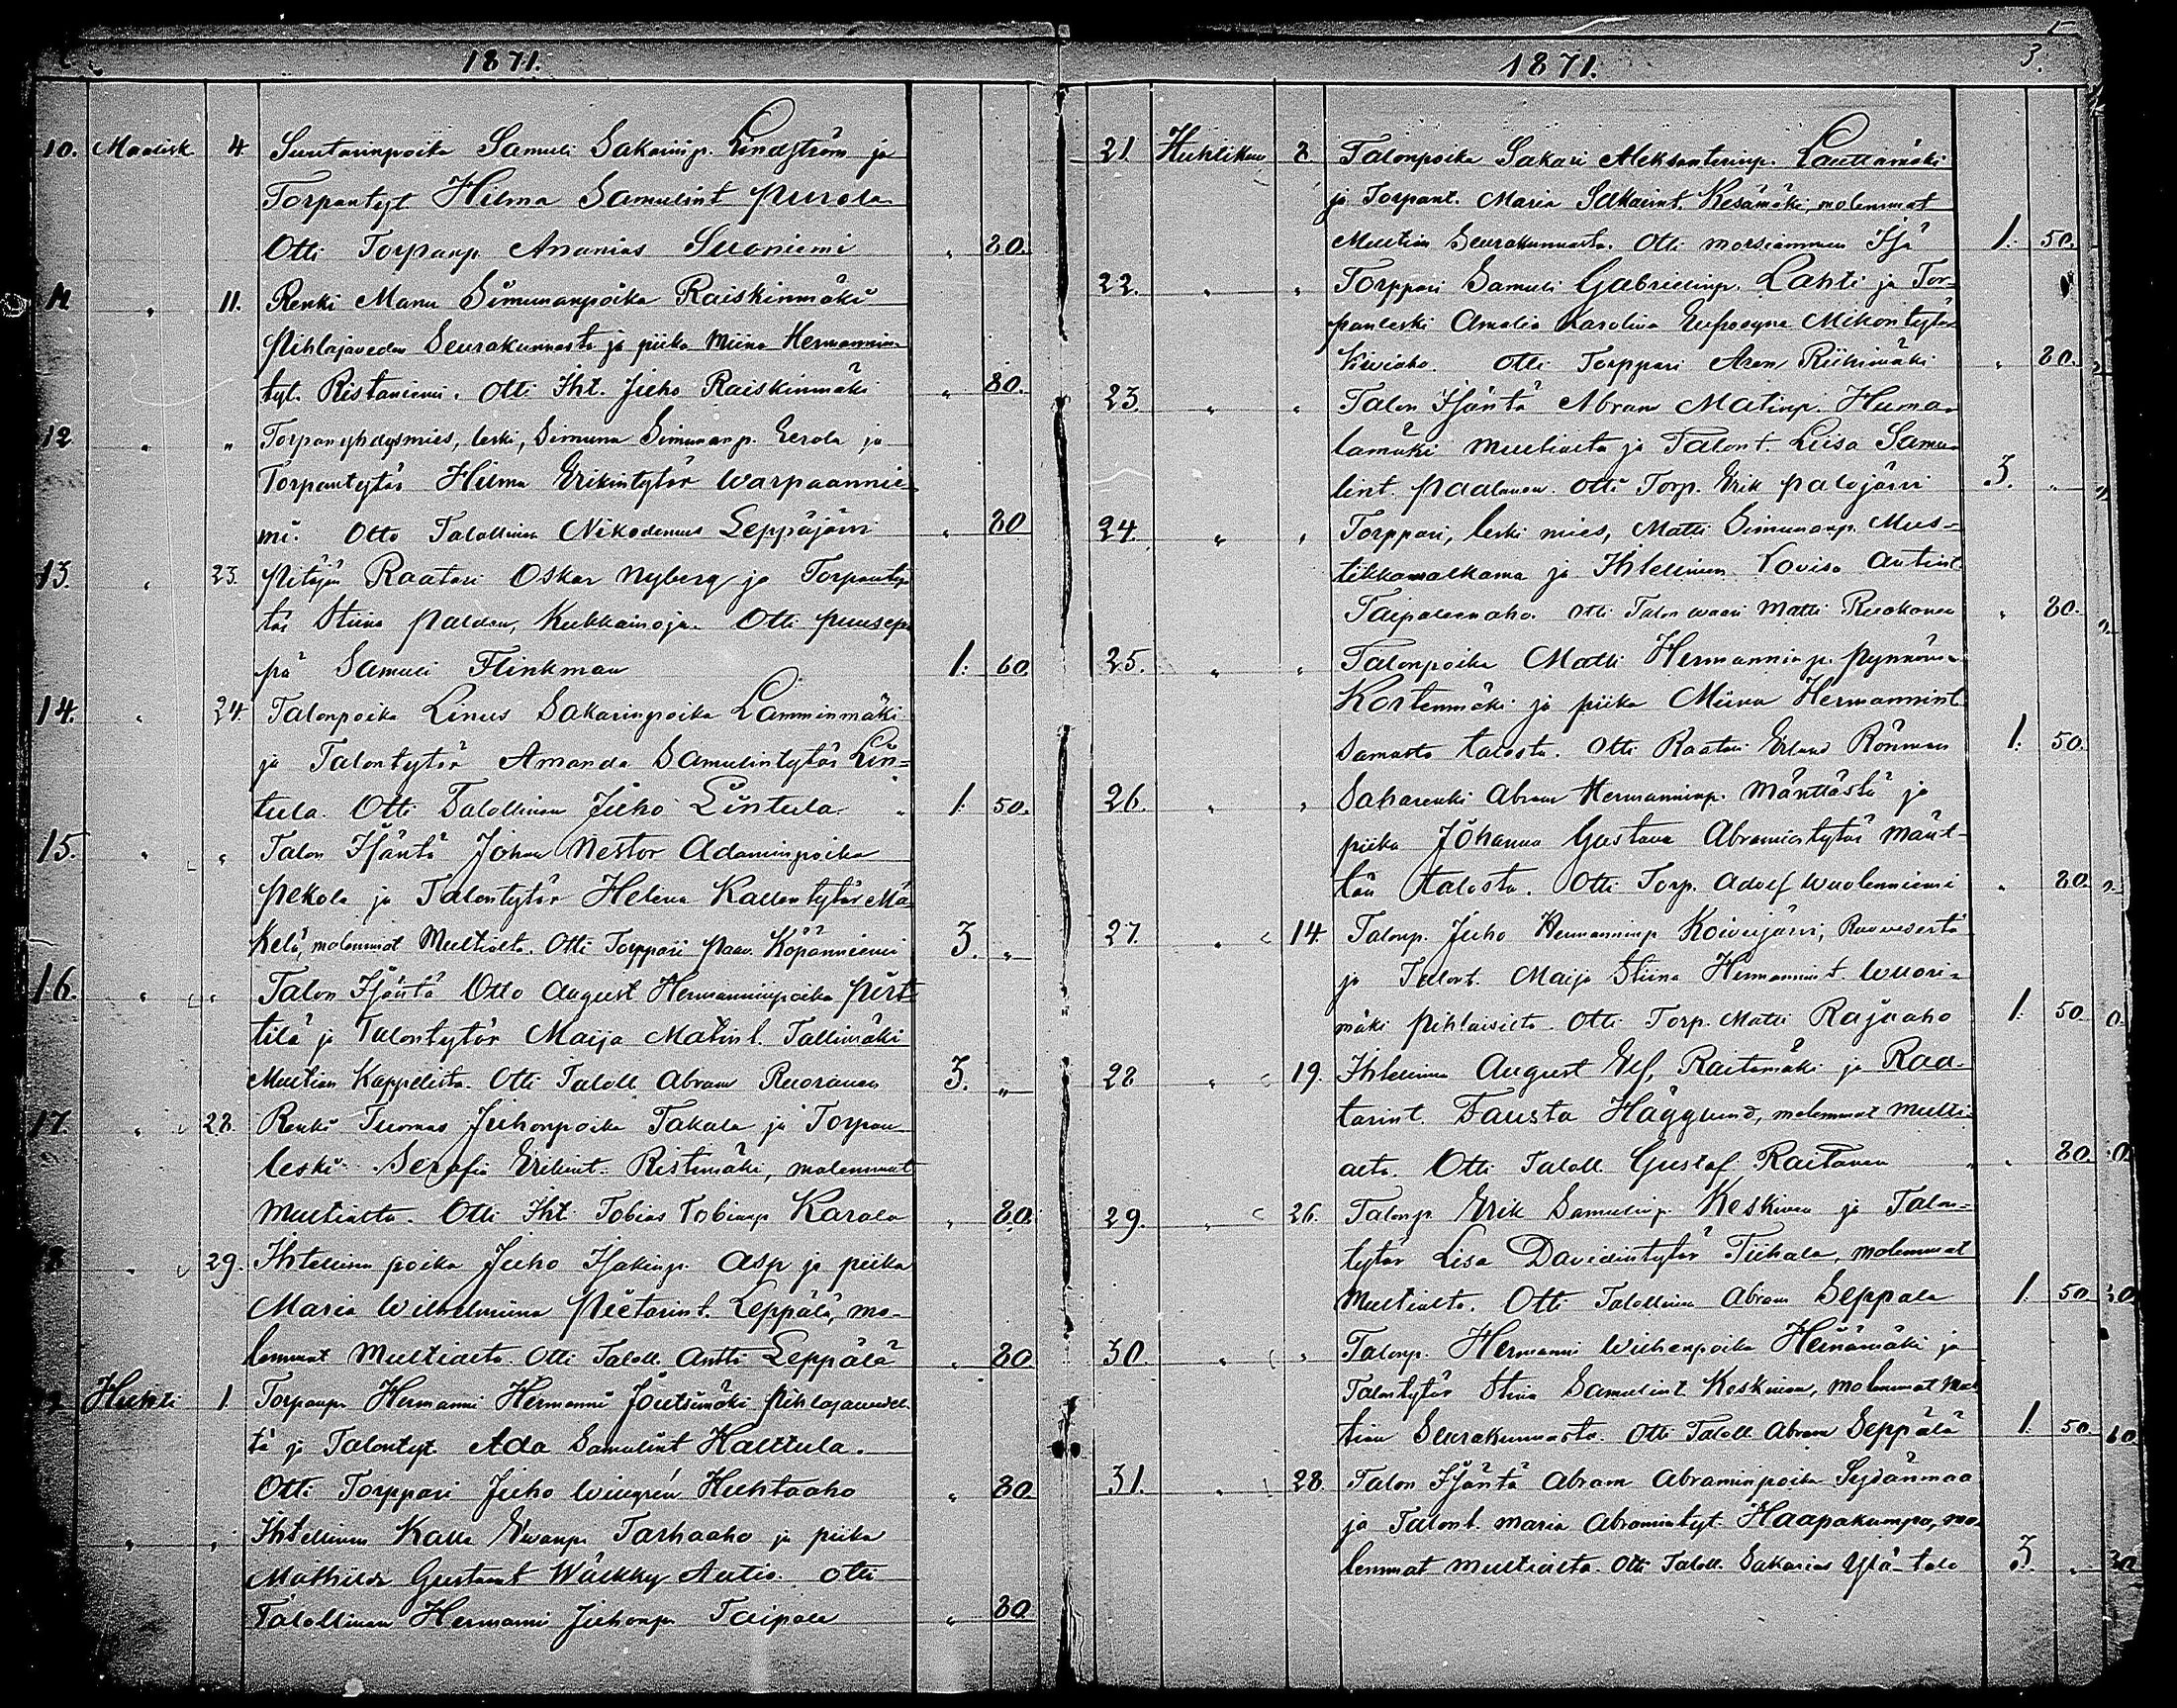 1871.
10. Maalisk 4. Suutarinpoika Samuli Sakarinp. Lindström ja
Torpantyt Hilma Samulint Purola
Otti Torpanp Ananias Suoniemi „ 80.
11. „ 11. Renki Manu Simunanpoika Raiskinmäki
Pihlajaveden Seurakunnasta ja piika Miina Hermannin-
tyt. Ristaniemi. Otti Iht. Juho Raiskinmäki „ 80.
12 „ „ Torpanyhdysmies, leski, Simuna Simunanp. Eerola ja
Torpantytär Hilma Erikintytär Warpaannie-
mi. Otto Talollinen Nikodemus Leppäjärvi „ 80
13. „ 23. Pitäjän Raatari Oskar Nyberg ja Torpanty-
tär Stiina Kukkainoja. Otti Puusep-
pä Samuli Flinkman 1. 60.
14. „ 24. Talonpoika Linus Sakarinpoika Lamminmäki
ja Talontytär Amanda Samulintytär Lin=
tula. Otti Talollinen Juho Lintula. „ 1. 50.
15. „ „ Talon Isäntä Johan Nestor Adaminpoika
Pekola ja Talontytär Helena Kallentytär Mä-
kelä, molemmat Multialta. Otti Torppari Paav. Köpänniemi 3. „
16. „ „ Talon Isäntä Otto August Hermanninpoika Pirt-
tilä ja Talontytär Maija Matint. Tallimäki
Multian Kappelista. Otti Taloll. Abram Ruoranen 3. „
17. „ 28. Renki Tuomas Juhonpoika Takala ja Torpan
leski Serafia Erikint. Ristimäki, molemmat
Multialta. Otti Iht Tobias Tobianp Karala „ 80.
8 „ 29. Ihtellisen poika Juho Isakinp. Asp ja piika
Maria Wilhelmiina Pietarint. Leppälä, mo-
lemmat Multialta. Otti Taloll. Antti Leppälä „ 80
Huhti 1 Torpanp. Hermanni Hermanni Joutsimäki Pihlajavedel-
tä ja Talontyt Ada Samulint Hauttula.
Otti Torppari Juho Huhtaaho „ 80
„ „ Ihtellinen Kalle Tarhaaho ja piika
Mathilda Gustaavt Autio. Otti
Talollinen Hermanni Juhonp. Taipale „ 80
1871. 3.
21 Huhtikuu 2 Talonpoika Sakari Aleksanterinp. Lauttamäki
ja Torpant. Maria Sakarint. Kesämäki, molemmat
Multian Seurakunnasta. Otti morsiammen Isä 1. 50.
22. „ „ Torppari Samuli Gabrielinp. Lahti ja Tor=
panleski Amalia Karolina Eufrosyne Mikontytär
Kiviaho. Otti Torppari Aron Riihimäki „ 80.
23. „ „ Talon Isäntä Abram Matinp. Huma-
lamäki Multialta ja Talont. Liisa Samu-
lint. Paalanen. Otti Torp. Erik Palojärvi 3. „
24. „ „ Torppari, leski mies, Matti Simunanp. Mus=
tikkamalkama ja Ihtellinen Lovisa Antint
Taipaleenaho. Otti Talon waari Matti Ruokonen „ 80.
25. „ „ Talonpoika Matti Hermanninp. Pynnönen
Kortenmäki ja piika Miina Hermannint
Samasta talosta. Otti Raatari Erland Rönman 1. 50.
26. „ „ Saharenki Abram Hermanninp. Mänttästä ja
piika Johanna Gustava Abramintytär Mänt-
tän talosta. Otti Torp. Adolf Wuolenniemi „ 80.
27. „ 14. Talonp. Juho Hermanninp Koivujärvi, Ruovesertä
ja Talont. Maija Stiina Hermannint. Wuori=
mäki Pihlaisilta. Otti Torp. Matti Rajaaho 1. 50
28 „ 19. Ihtellinen August Elf, Raitamäki ja Raa-
tarint. Fausta Hägglund, molemmat Multi-
alta. Otti Taloll. Gustaf Raitanen „ 80.
29. „ 26. Talonp. Erik Samulinp. Keskinen ja Talon=
tytär Lisa Davidintytär Tiihala, molemmat
Multialta. Otti Talollinen Abram Seppälä 1. 50
30. „ „ Talonp. Hermanni Heinämäki ja
Talontytär Stina Samulint. Keskinen, molemmat Mul
tian Seurakunnasta. Otti Taloll. Abram Seppälä 1. 50.
31. „ 28. Talon Isäntä Abram Abraminpoika Sydänmaa
ja Talont. Maria Abramintyt. Haapakumpu, mo-
lemmat Multialta. Otti Taloll. Sakarias Ylä-talo 3. „